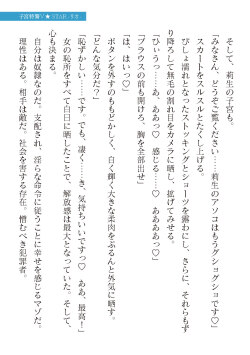 そして、莉生の子宮も。
「みなさん、どうぞご覧ください……莉生のアソコはもうグショグショです♡」
スカートをスルスルとたくし上げる。
びしょ濡れとなったストッキングとショーツを露わにし、さらに、それらもず
り降ろして無毛の割れ目をカメラに晒し、拡げてみせる。
「ひぃうっ……あ、ああっ♡　感じる……♡　ああああっ♡」
「ブラウスの前も開けろ、胸を全部出せ」
「は、はいっ♡」
ボタンを外すのももどかしく、白く輝く大きな柔肉をぶるんと外気に晒す。
「どんな気分だ？」
「恥ずかしい……です　でも、凄く……き、気持ちいいですっ♡　ああ、最高！」
女の恥所をすべて曝したことで、解放感は最大となっていた。そして、
心も決まる。
自分は奴隷なのだ。支配され、淫らな命令に従うことに幸せを感じるマゾだ。
理性はある。相手は敵だ。社会を害する存在。憎むべき犯罪者。